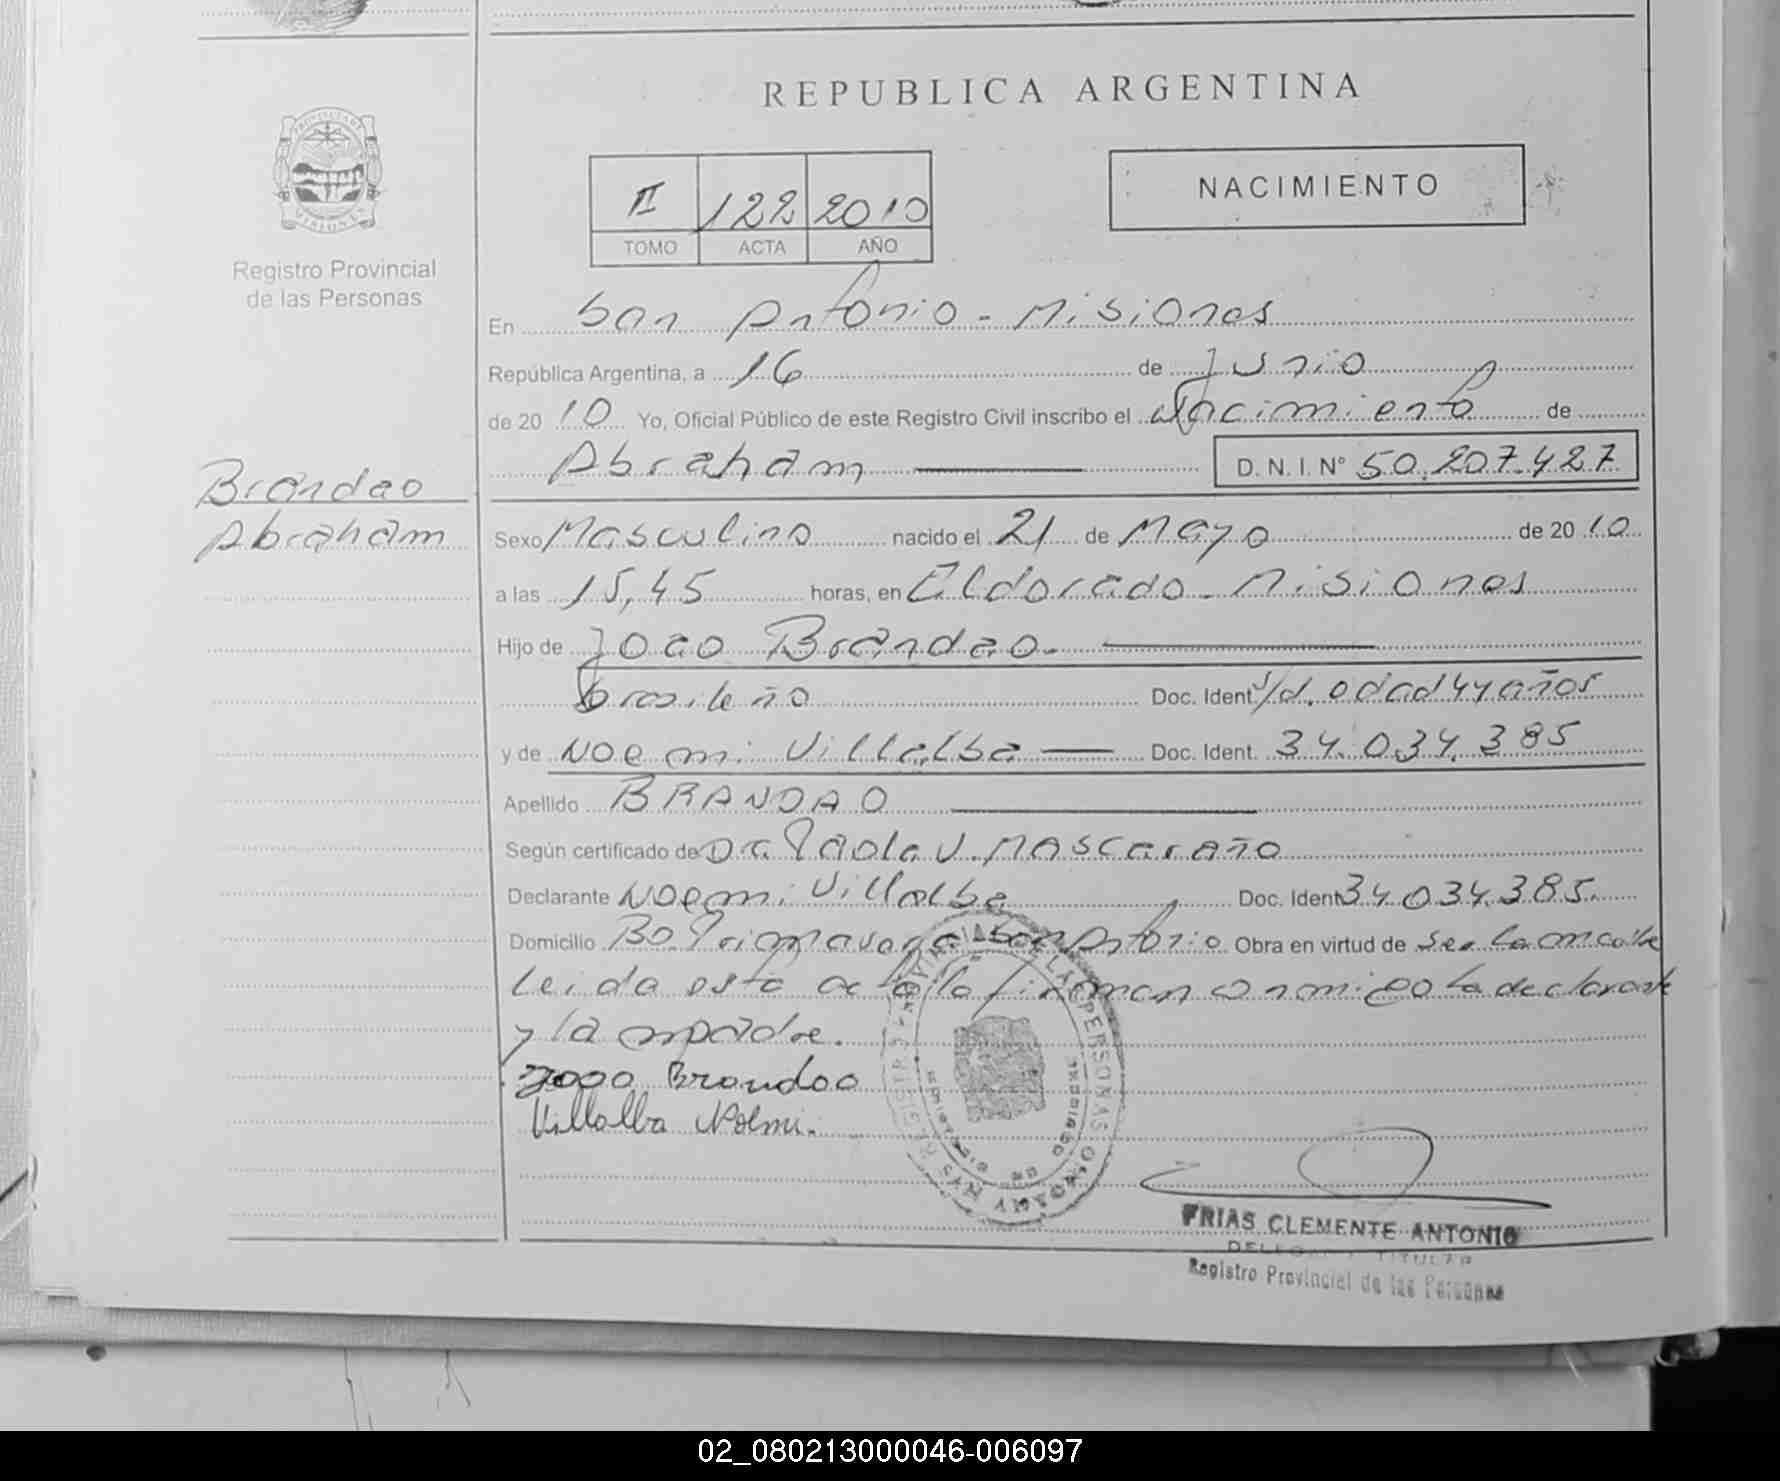 REPUBLICA ARGENTINA
PROVINCIA DE
MISIONES
Registro Provincial
de las Personas
II 122 2010
TOMO ACTA AÑO
NACIMIENTO
En San Antonio - Misiones
República Argentina, a 16 de Junio
de 2010 Yo, Oficial Público de este Registro Civil inscribo el Nacimiento de
Abraham D.N.I. N° 50.207.427
Brandao
Abraham
Sexo Masculino nacido el 21 de Mayo de 2010
a las 15,45 horas, en Eldorado - Misiones
Hijo de Joao Brandao.
brasileño Doc. Ident. s/d. edad 44 años
y de Noemi Villalba Doc. Ident. 34.034.385
Apellido BRANDAO
Según certificado de Dra Paola V. Mascaraño
Declarante Noemi Villalba Doc. Ident. 34.034.385.
Domicilio Bo. Primavera - San Antonio Obra en virtud de ser la madre
Leida esta acta la firman conmigo la declarante
y la madre.
Joao Brandao
Villalba Noemi.
FRIAS CLEMENTE ANTONIO
DELEGADO TITULAR
Registro Provincial de las Personas
02_080213000046-006097